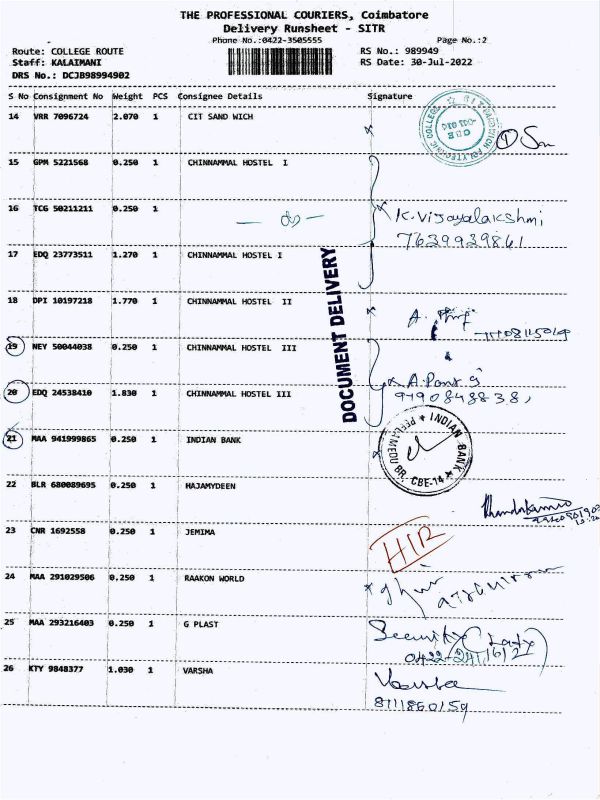 THE PROFESSIONAL COURIERS, Coimbatore
Delivery Runsheet - SITR
Phone No.:0422-3505555 Page No.:2
Route: COLLEGE ROUTE RS No.: 989949
Staff: KALAIMANI RS Date: 30-Jul-2022
DRS No.: DCJB98994902
S No Consignment No Weight PCS Consignee Details Signature
14 VRR 7096724 2.070 1 CIT SAND WICH
15 GPM 5221568 0.250 1 CHINNAMMAL HOSTEL I
16 TCG 50211211 0.250 1
K. Vijayalakshmi
7639939861
17 EDQ 23773511 1.270 1 CHINNAMMAL HOSTEL I
DOCUMENT DELIVERY
18 DPI 10197218 1.770 1 CHINNAMMAL HOSTEL II
A.
19 NEY 50044038 0.250 1 CHINNAMMAL HOSTEL III
20 EDQ 24538410 1.830 1 CHINNAMMAL HOSTEL III
21 MAA 941999865 0.250 1 INDIAN BANK
INDIAN BANK
PEELAMEDU BR. CBE-14
22 BLR 680089695 0.250 1 HAJAMYDEEN
23 CNR 1692558 0.250 1 JEMIMA
HIR
24 MAA 291029506 0.250 1 RAAKON WORLD
25 MAA 293216403 0.250 1 G PLAST
Security (Lady)
26 KTY 9848377 1.030 1 VARSHA
Varsha
8111860159